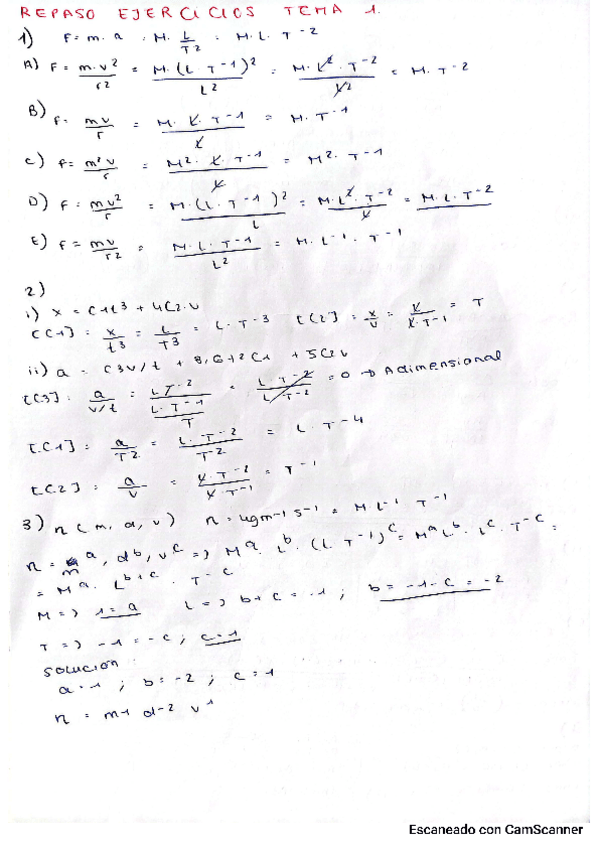 REPASO EJERCICIOS TEMA 1.
1) F = m · a = M · L/T2 = M · L · T-2
A) F = m·v2/r2 = M·(L·T-1)2/L2 = M·L2·T-2/L2 = M·T-2
B) F = mv/r = M·L·T-1/L = M·T-1
C) F = m2v/r = M2·L·T-1/L = M2·T-1
D) F = mv2/r = M·(L·T-1)2/L = M·L2·T-2/L = M·L·T-2
E) F = mv/r2 = M·L·T-1/L2 = M·L-1·T-1
2)
i) x = C1t3 + 4C2·v
[C1] = x/t3 = L/T3 = L·T-3 [C2] = x/v = L/L·T-1 = T
ii) a = C3v/t + 8,6t2C1 + 5C2v
[C3] = a/v/t = LT-2/L·T-1/T = L·T-2/L·T-2 = 0 → Adimensional
[C1] = a/T2 = L·T-2/T2 = L·T-4
[C2] = a/v = L·T-2/L·T-1 = T-1
3) n (m, d, v) n = kgm-1s-1 = M L-1 T-1
n = ma, db, vc => Ma·Lb·(L·T-1)c = MaLb·Lc·T-c =
= Ma·Lb+c·T-c
M => 1 = a L => b+c = -1 ; b = -1-c = -2
T => -1 = -c ; c = 1
Solución
a = 1 ; b = -2 ; c = 1
n = m1 d-2 v1
Escaneado con CamScanner